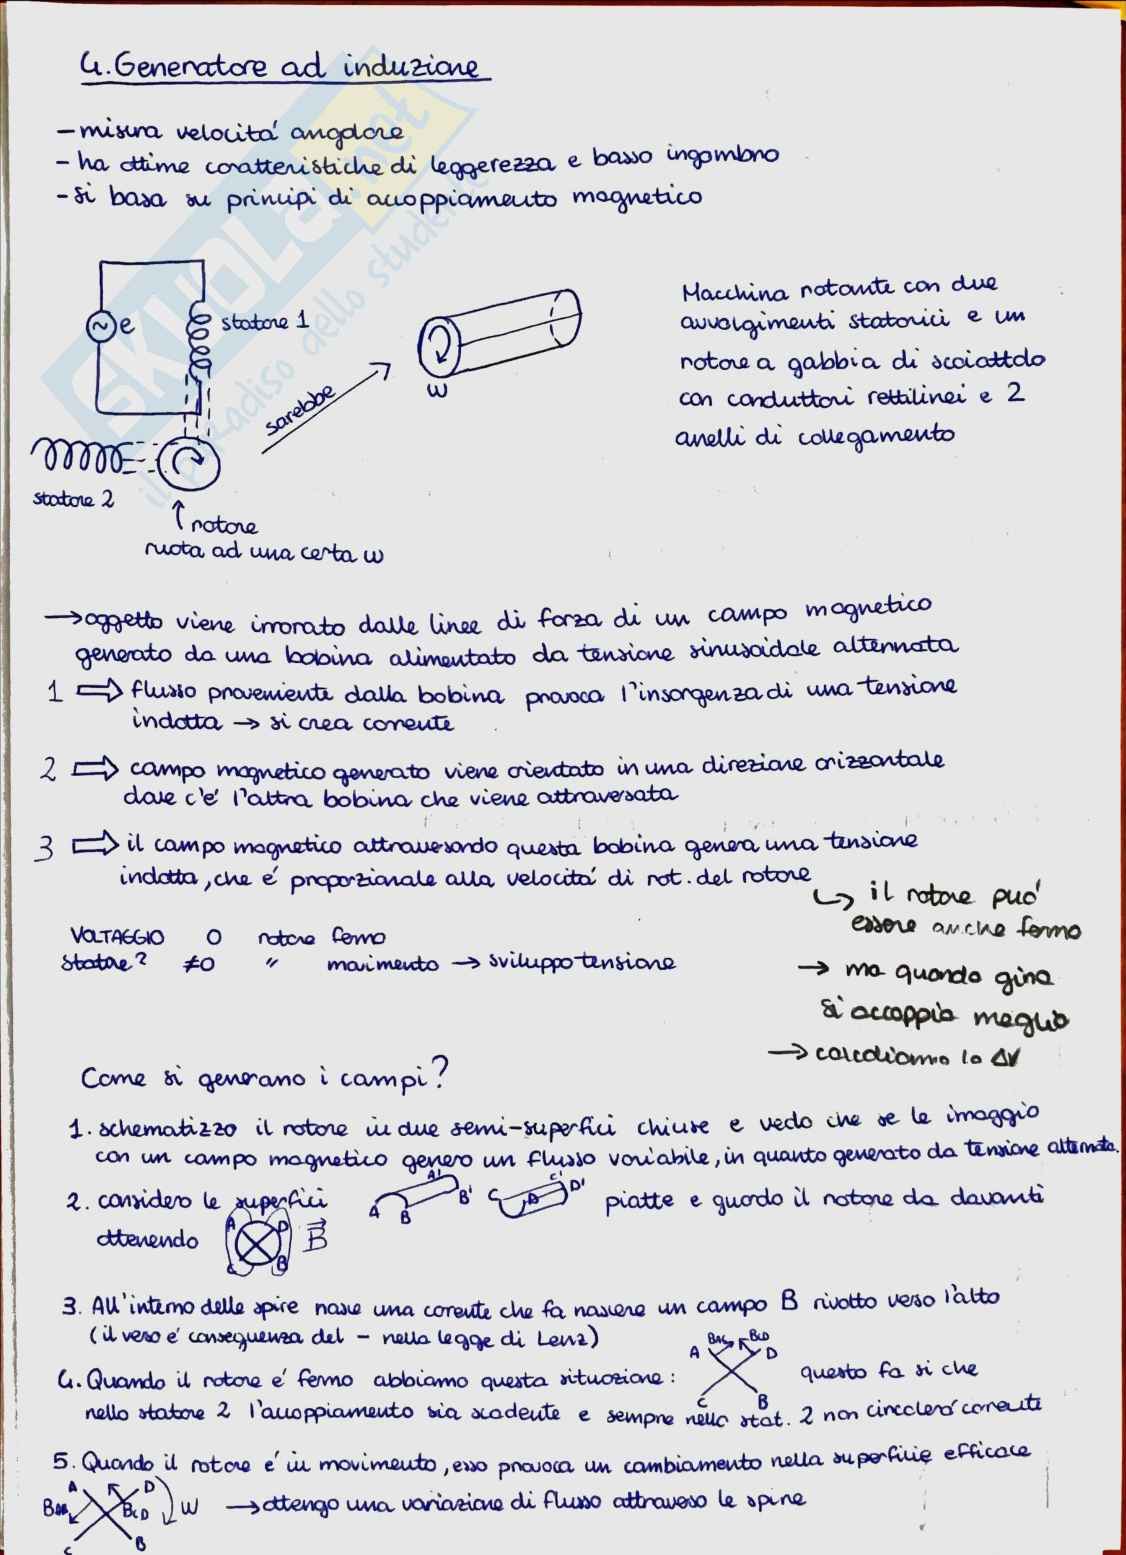 4. Generatore ad induzione
- misura velocità angolare
- ha ottime caratteristiche di leggerezza e basso ingombro
- si basa su principi di accoppiamento magnetico
SKUOLA.net
il paradiso dello studente
e
statore 1
sarebbe
ω
statore 2
rotore
ruota ad una certa ω
Macchina rotante con due
avvolgimenti statorici e un
rotore a gabbia di scoiattolo
con conduttori rettilinei e 2
anelli di collegamento
→ oggetto viene irrorato dalle linee di forza di un campo magnetico
generato da una bobina alimentato da tensione sinusoidale alternata
1 ⇒ flusso proveniente dalla bobina provoca l'insorgenza di una tensione
indotta → si crea corrente
2 ⇒ campo magnetico generato viene orientato in una direzione orizzontale
dove c'è l'altra bobina che viene attraversata
3 ⇒ il campo magnetico attraversando questa bobina genera una tensione
indotta, che è proporzionale alla velocità di rot. del rotore
↳ il rotore può
essere anche fermo
→ ma quando gira
si accoppia meglio
→ calcoliamo la ΔV
VOLTAGGIO 0 rotore fermo
statore 2 ≠0 " movimento → sviluppo tensione
Come si generano i campi?
1. schematizzo il rotore in due semi-superfici chiuse e vedo che se le imaggio
con un campo magnetico genero un flusso variabile, in quanto generato da tensione alternata.
2. considero le superfici A B A' B' C D C' D' piatte e guardo il rotore da davanti
ottenendo A D C B B
3. All'interno delle spire nasce una corrente che fa nascere un campo B rivolto verso l'alto
(il verso è conseguenza del - nella legge di Lenz)
4. Quando il rotore è fermo abbiamo questa situazione: A D C B BCD questo fa si che
nello statore 2 l'accoppiamento sia scadente e sempre nello stat. 2 non circolerò corrente
5. Quando il rotore è in movimento, esso provoca un cambiamento nella superficie efficace
A D BAB BCD C B ω → ottengo una variazione di flusso attraverso le spire